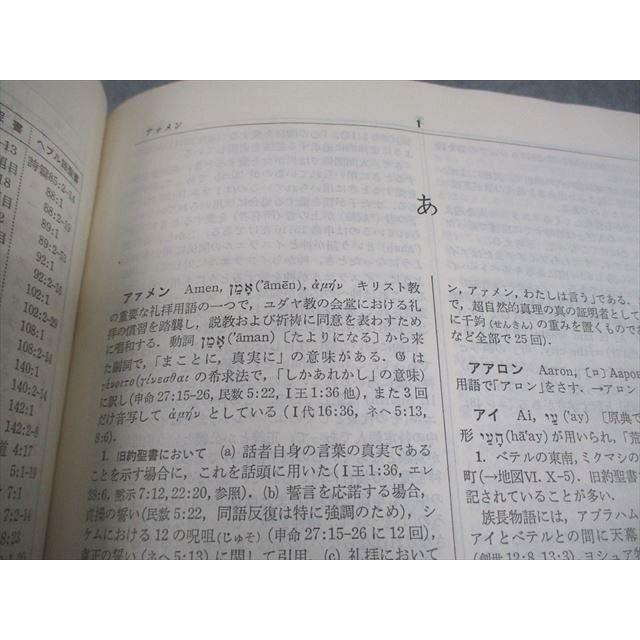 アァメン
1
あ
アァメン Amen, אָמֵן('āmēn), ἀμήν キリスト教
の重要な礼拝用語の一つで, ユダヤ教の会堂における礼
拝の慣習を踏襲し, 説教および祈祷に同意を表わすため
に唱和する. 動詞 אָמַן('āman)[たよりになる]から来
た副詞で,「まことに, 真実に」の意味がある. 𝔊 は
γένοιτο(γίνεσθαι の希求法で,「しかあれかし」の意味)
と訳し(申命27:15-26, 民数5:22, I王1:36他), また3回
だけ音写して ἀμήν としている(I代16:36, ネヘ5:13,
8:6).
1. 旧約聖書において (a) 話者自身の言葉の真実であ
ることを示す場合に, これを話頭に用いた(I王1:36, エレ
28:6, 黙示7:12, 22:20, 参照). (b) 誓言を応諾する場合,
の誓い(民数5:22, 同語反復は特に強調のため), シ
ケムにおける12の呪咀(じゅそ)(申命27:15-26に12回),
の誓い(ネヘ5:13)に関して引用. (c) 礼拝において
ン, アァメン, わたしは言う」である.
で, 超自然的真理の真の証明者として
に千鈞(せんきん)の重みを置くもので
など全部で25回).
アアロン Aaron, [ロ] Аарон
用語で「アロン」をさす. →アロン
アイ Ai, עַי('ay) [原典で
形 הָעַי(hā'ay)が用いられ,「荒
1. ベテルの東南, ミクマシの
町(→地図VI. X-5). 旧約聖書
記されていることが多い.
族長物語には, アブラハム
アイとベテルとの間に天幕
(創世12:8, 13:3). ヨシュア
聖書
ヘブル語聖書
詩篇85:2-14
88:1
88:2-19
89:1
89:2-53
92:1
92:2-16
102:1
102:2-29
108:1
108:2-14
140:1
140:2-14
142:1
142:2-8
道 4:17
5:1-19
7:1
7:2-14
8:23